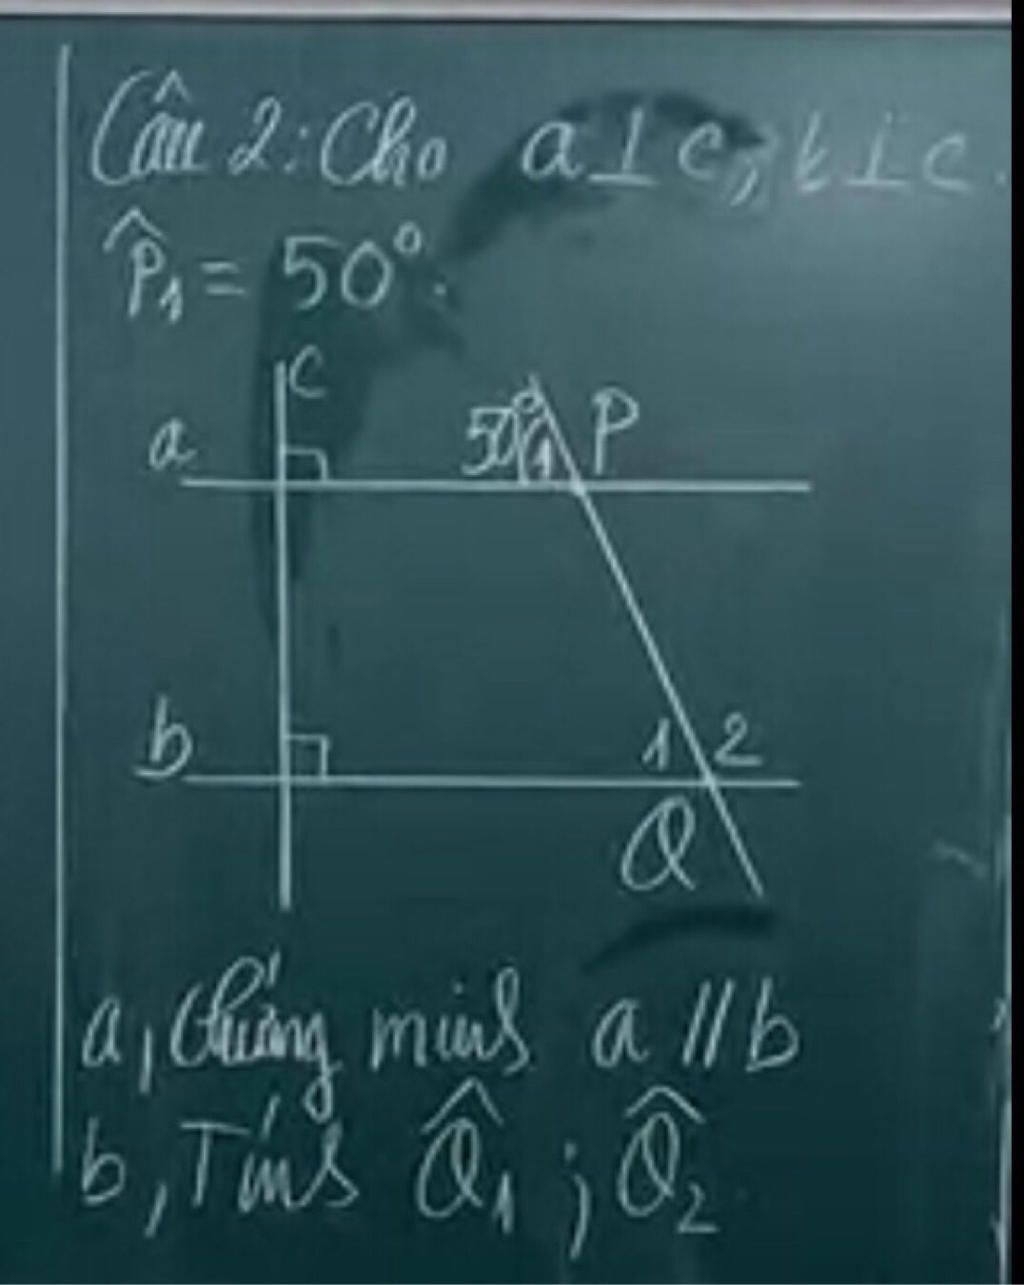 Câu 2: Cho a⊥c, b⊥c.
P̂₁ = 50°.
c
a 50° 1 P
b 1 2
Q
a, Chứng minh a // b
b, Tính Q̂₁ ; Q̂₂